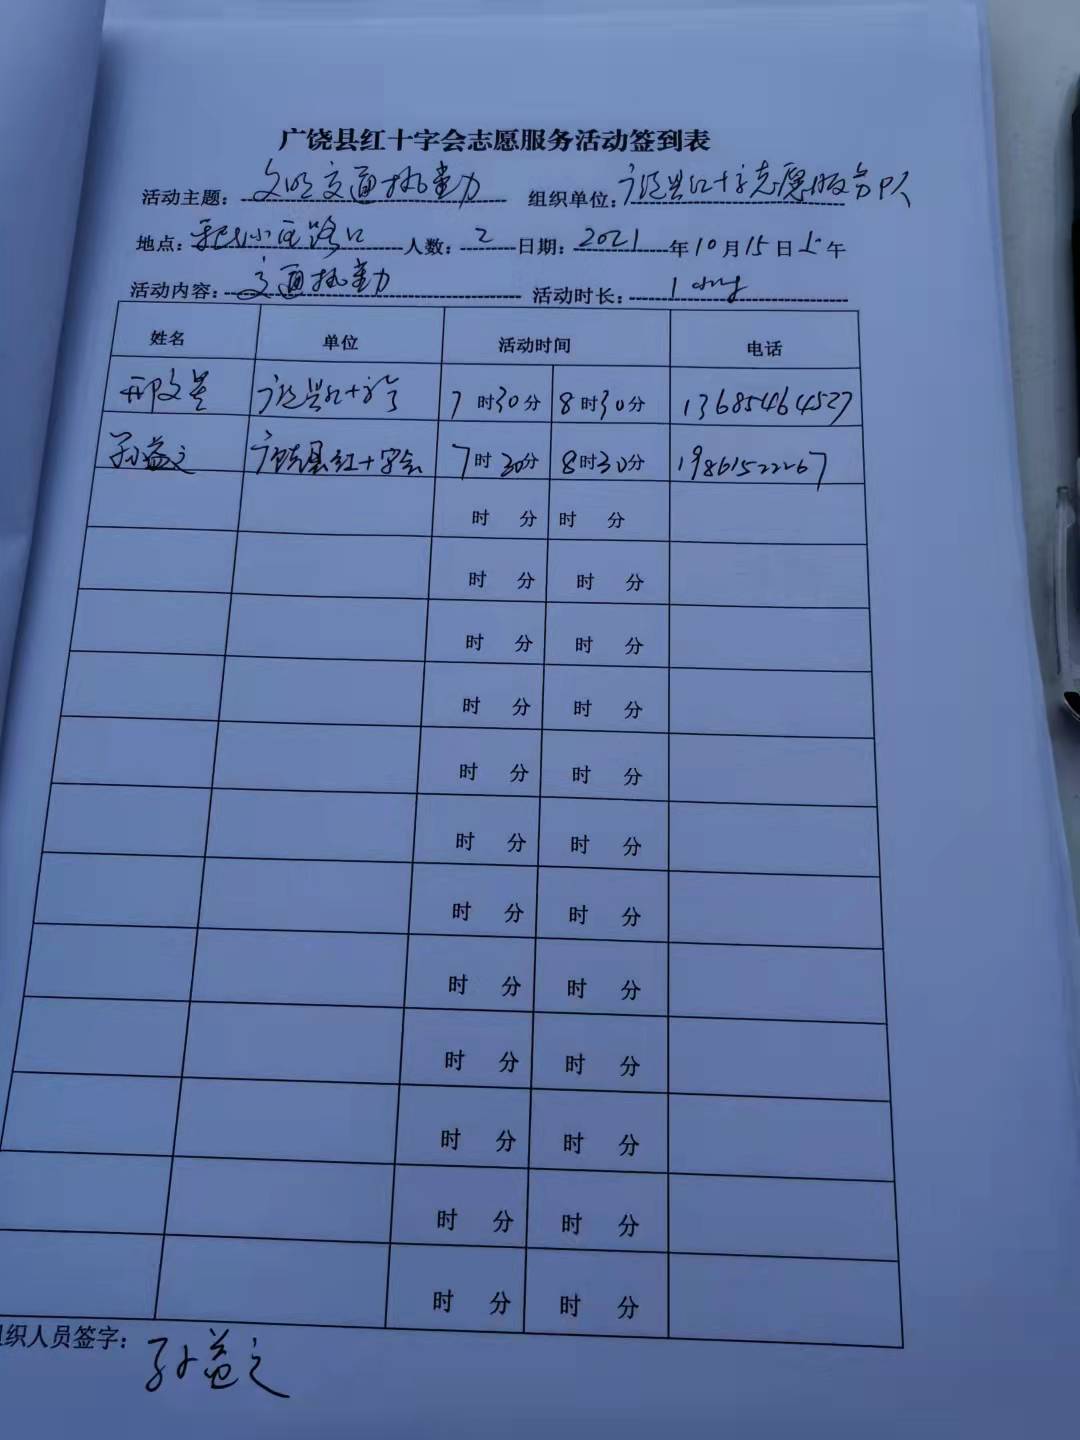 广饶县红十字会志愿服务活动签到表
活动主题: 文明交通执勤 组织单位: 广饶县红十字志愿服务中队
地点: 路口 人数: 2 日期: 2021 年 10 月 15 日 上 午
活动内容: 交通执勤 活动时长: 1
姓名 单位 活动时间 电话
邢文 广饶县红十字会 7 时 30 分 8 时 30 分 13685464527
孙益之 广饶县红十字会 7 时 30 分 8 时 30 分 19861522267
时 分 时 分
时 分 时 分
时 分 时 分
时 分 时 分
时 分 时 分
时 分 时 分
时 分 时 分
时 分 时 分
时 分 时 分
时 分 时 分
时 分 时 分
时 分 时 分
组织人员签字: 孙益之